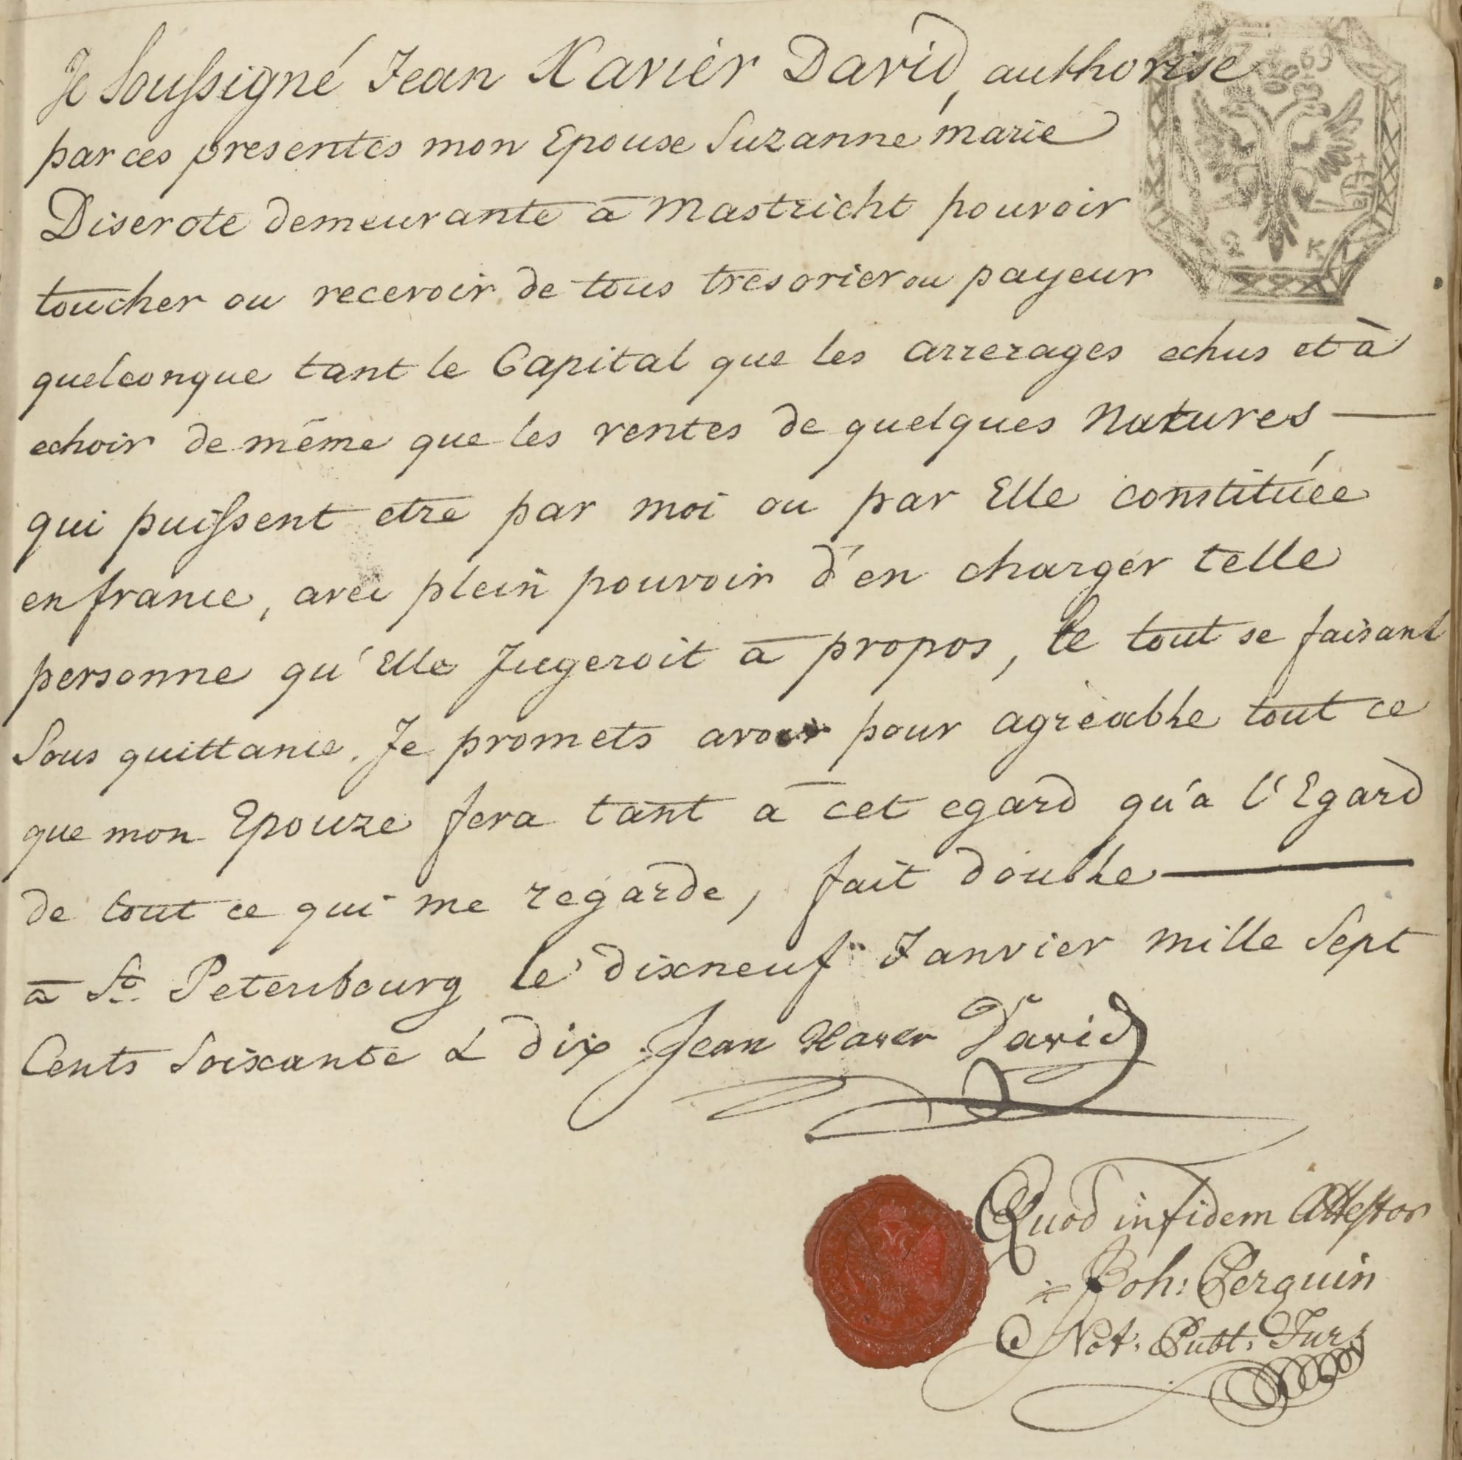 Je Soussigné Jean Xavier David, authorise
par ces presentes mon Epouse Suzanne marie
Diserote demeurante a Mastricht pouvoir
toucher ou recevoir de tous tresorier ou payeur
quelconque tant le Capital que les arrerages echus et à
echoir de même que les rentes de quelques Natures
qui puissent etre par moi ou par Elle constituée
en france, avec plein pouvoir d'en charger telle
personne qu'Elle Jugeroit a propos, le tout se faisant
Sous quittance. Je promets avoir pour agreable tout ce
que mon Epouze fera tant a cet egard qu'a l'Egard
de tout ce qui me regarde, fait double
a St. Petersbourg le dixneuf Janvier mille Sept
Cents Soixante & dix Jean Xavier David
Quod in fidem Attestor
Joh: Perquin
Not: Publ: Jur:
17 69
2 K